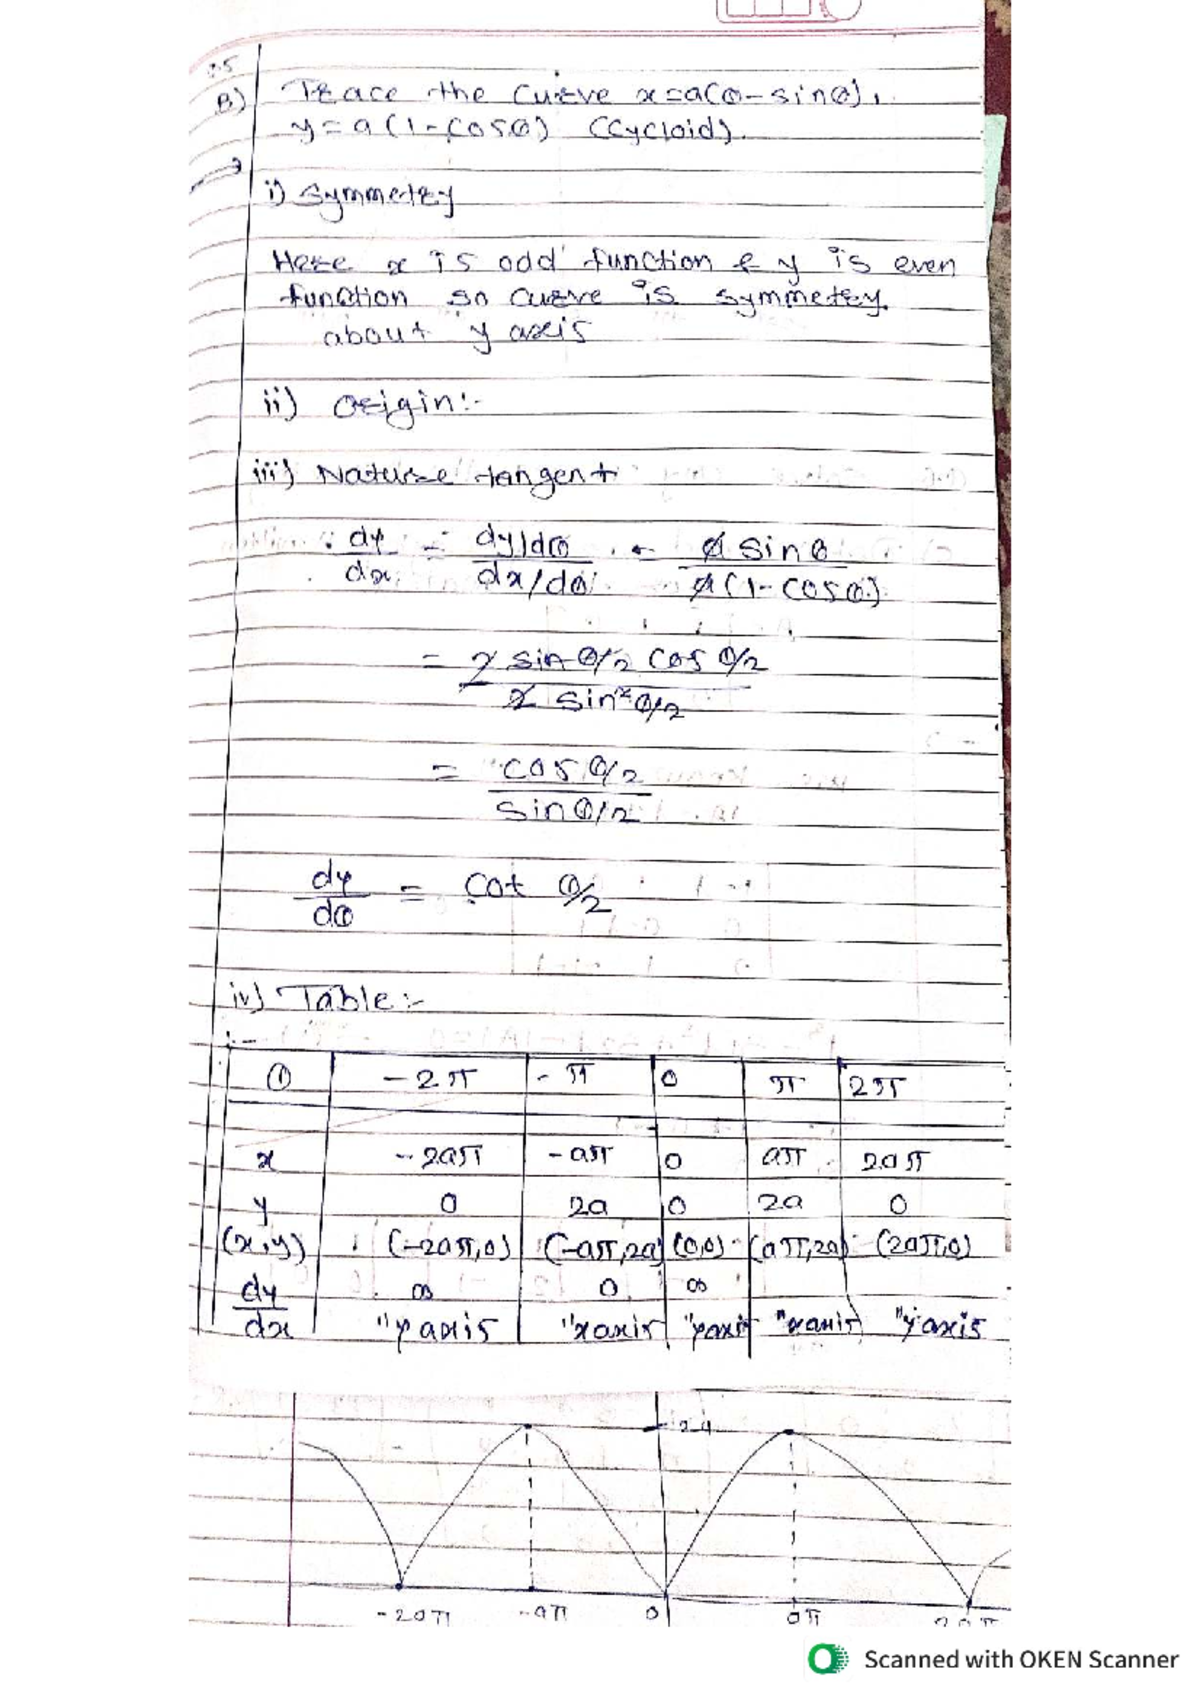 B) Trace the curve x=a(θ-sinθ),
y=a(1-cosθ) (Cycloid).
i) Symmetry
Here x is odd function & y is even
function so curve is symmetry
about y axis
ii) Origin:-
iii) Nature tangent
dy/dx = dy/dθ / dx/dθ = a sinθ / a(1-cosθ)
= 2 sin θ/2 cos θ/2 / 2 sin² θ/2
= cos θ/2 / sin θ/2
dy/dθ = cot θ/2
iv) Table:-
θ -2π -π 0 π 2π
x -2aπ -aπ 0 aπ 2aπ
y 0 2a 0 2a 0
(x,y) (-2aπ,0) (-aπ,2a) (0,0) (aπ,2a) (2aπ,0)
dy/dx ∞ 0 ∞
"y axis "x axis "y axis "x axis "y axis
2a
-2aπ -aπ 0 aπ 2aπ
Scanned with OKEN Scanner